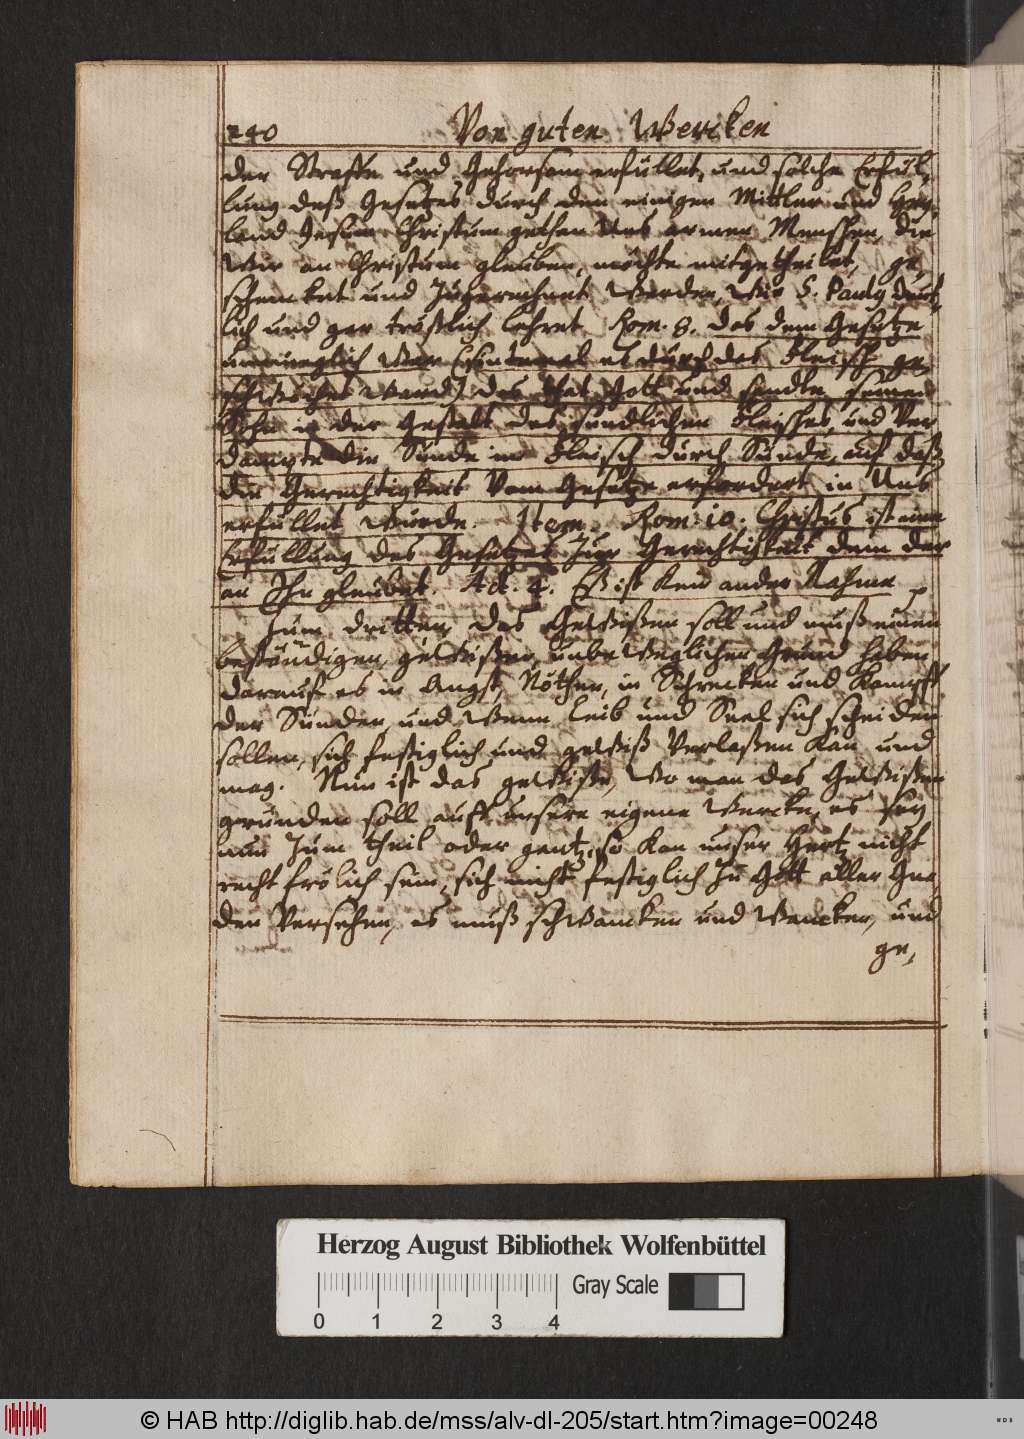 240 Von guten Wercken
der Straffe und Gehorsam erfüllet, und solche Erfül,
lung deß Gesetzes durch den einigen Mittler und Hey,
land Jesum Christum gethan Uns armen Menschen, die
Wir an Christum gleuben, möchte mitgetheilet, ge,
schencket und Zugerechnet Werden, Wie S. Pauly deut,
lich und gar tröstlich lehret Rom. 8. das dem Gesetze
unmueglich War (Sintemal es durch das Fleisch ge,
schwechet ward) das that Gott und sendte seinen
Sohn in der Gestalt des sündlichen Fleisches, und Ver
dampte die Sünde im Fleisch durch Sünde, auf daß
die Gerechtigkeit Vom Gesetze erfordert in Uns
erfüllet würde. Item. Rom: 10. Christus ist eine
Erfüllung des Gesetzes Zur Gerechtichkeit dem der
an Ihn gleubet. Act. 4. Eß ist kein ander Nahme
Zum dritten, Das Gewissen soll und muß einen
beständigen, gewissen, unbeweglichen Grund haben
darauf es in Angst, Nöthen, in Schrecken und Kampff
der Sünden und Wenn leib und Seel sich scheiden
sollen, sich festiglich und gewiß Verlaßen kan und
mag. Nun ist das gewisse, Wo man das Gewissen
gründen soll auff unsere eigene Wercke, es sey
nun Zum theil oder gantz, so kan unser Hertz nicht
recht frölich sein, sich nicht festiglich Zu Gott aller Gna,
den Versehen, es muß schwancken und Wancken, und
ge,
Herzog August Bibliothek Wolfenbüttel
Gray Scale
0 1 2 3 4
© HAB http://diglib.hab.de/mss/alv-dl-205/start.htm?image=00248